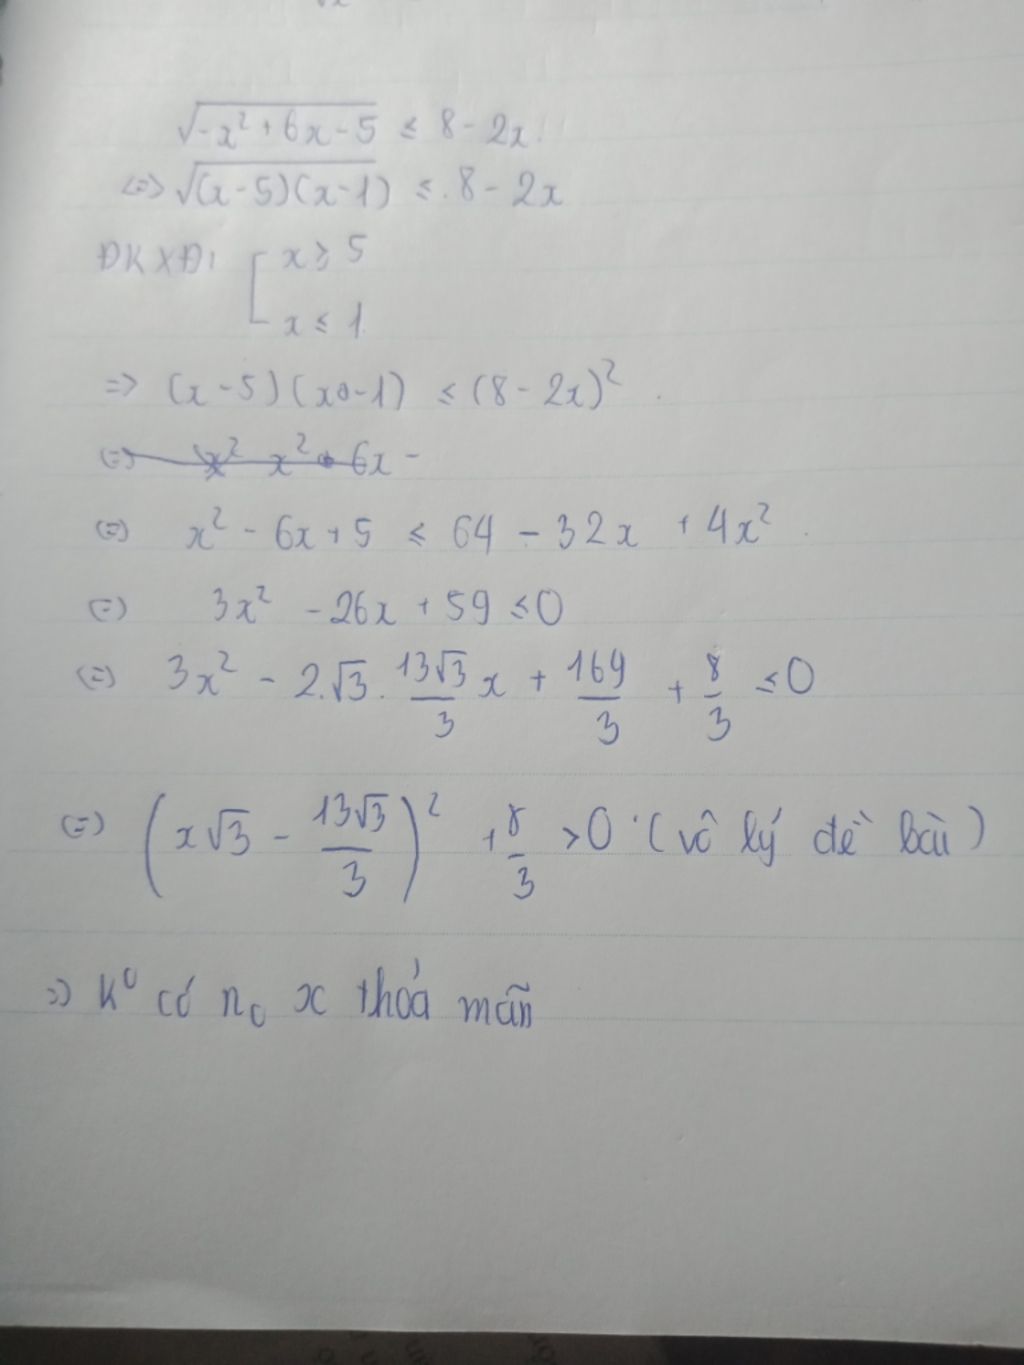 √(-x² + 6x - 5) ≤ 8 - 2x.
<=> √((x-5)(x-1)) ≤ 8 - 2x
ĐKXĐ: [ x ≥ 5
x ≤ 1
=> (x-5)(x-1) ≤ (8-2x)².
(=) x² x² 6x -
(=) x² - 6x + 5 ≤ 64 - 32x + 4x².
(=) 3x² - 26x + 59 ≤ 0
(=) 3x² - 2.√3. 13√3/3 x + 169/3 + 8/3 ≤ 0
(=) (x√3 - 13√3/3)² + 8/3 > 0 (vô lý đề bài)
=> K⁰ có n₀ x thỏa mãn